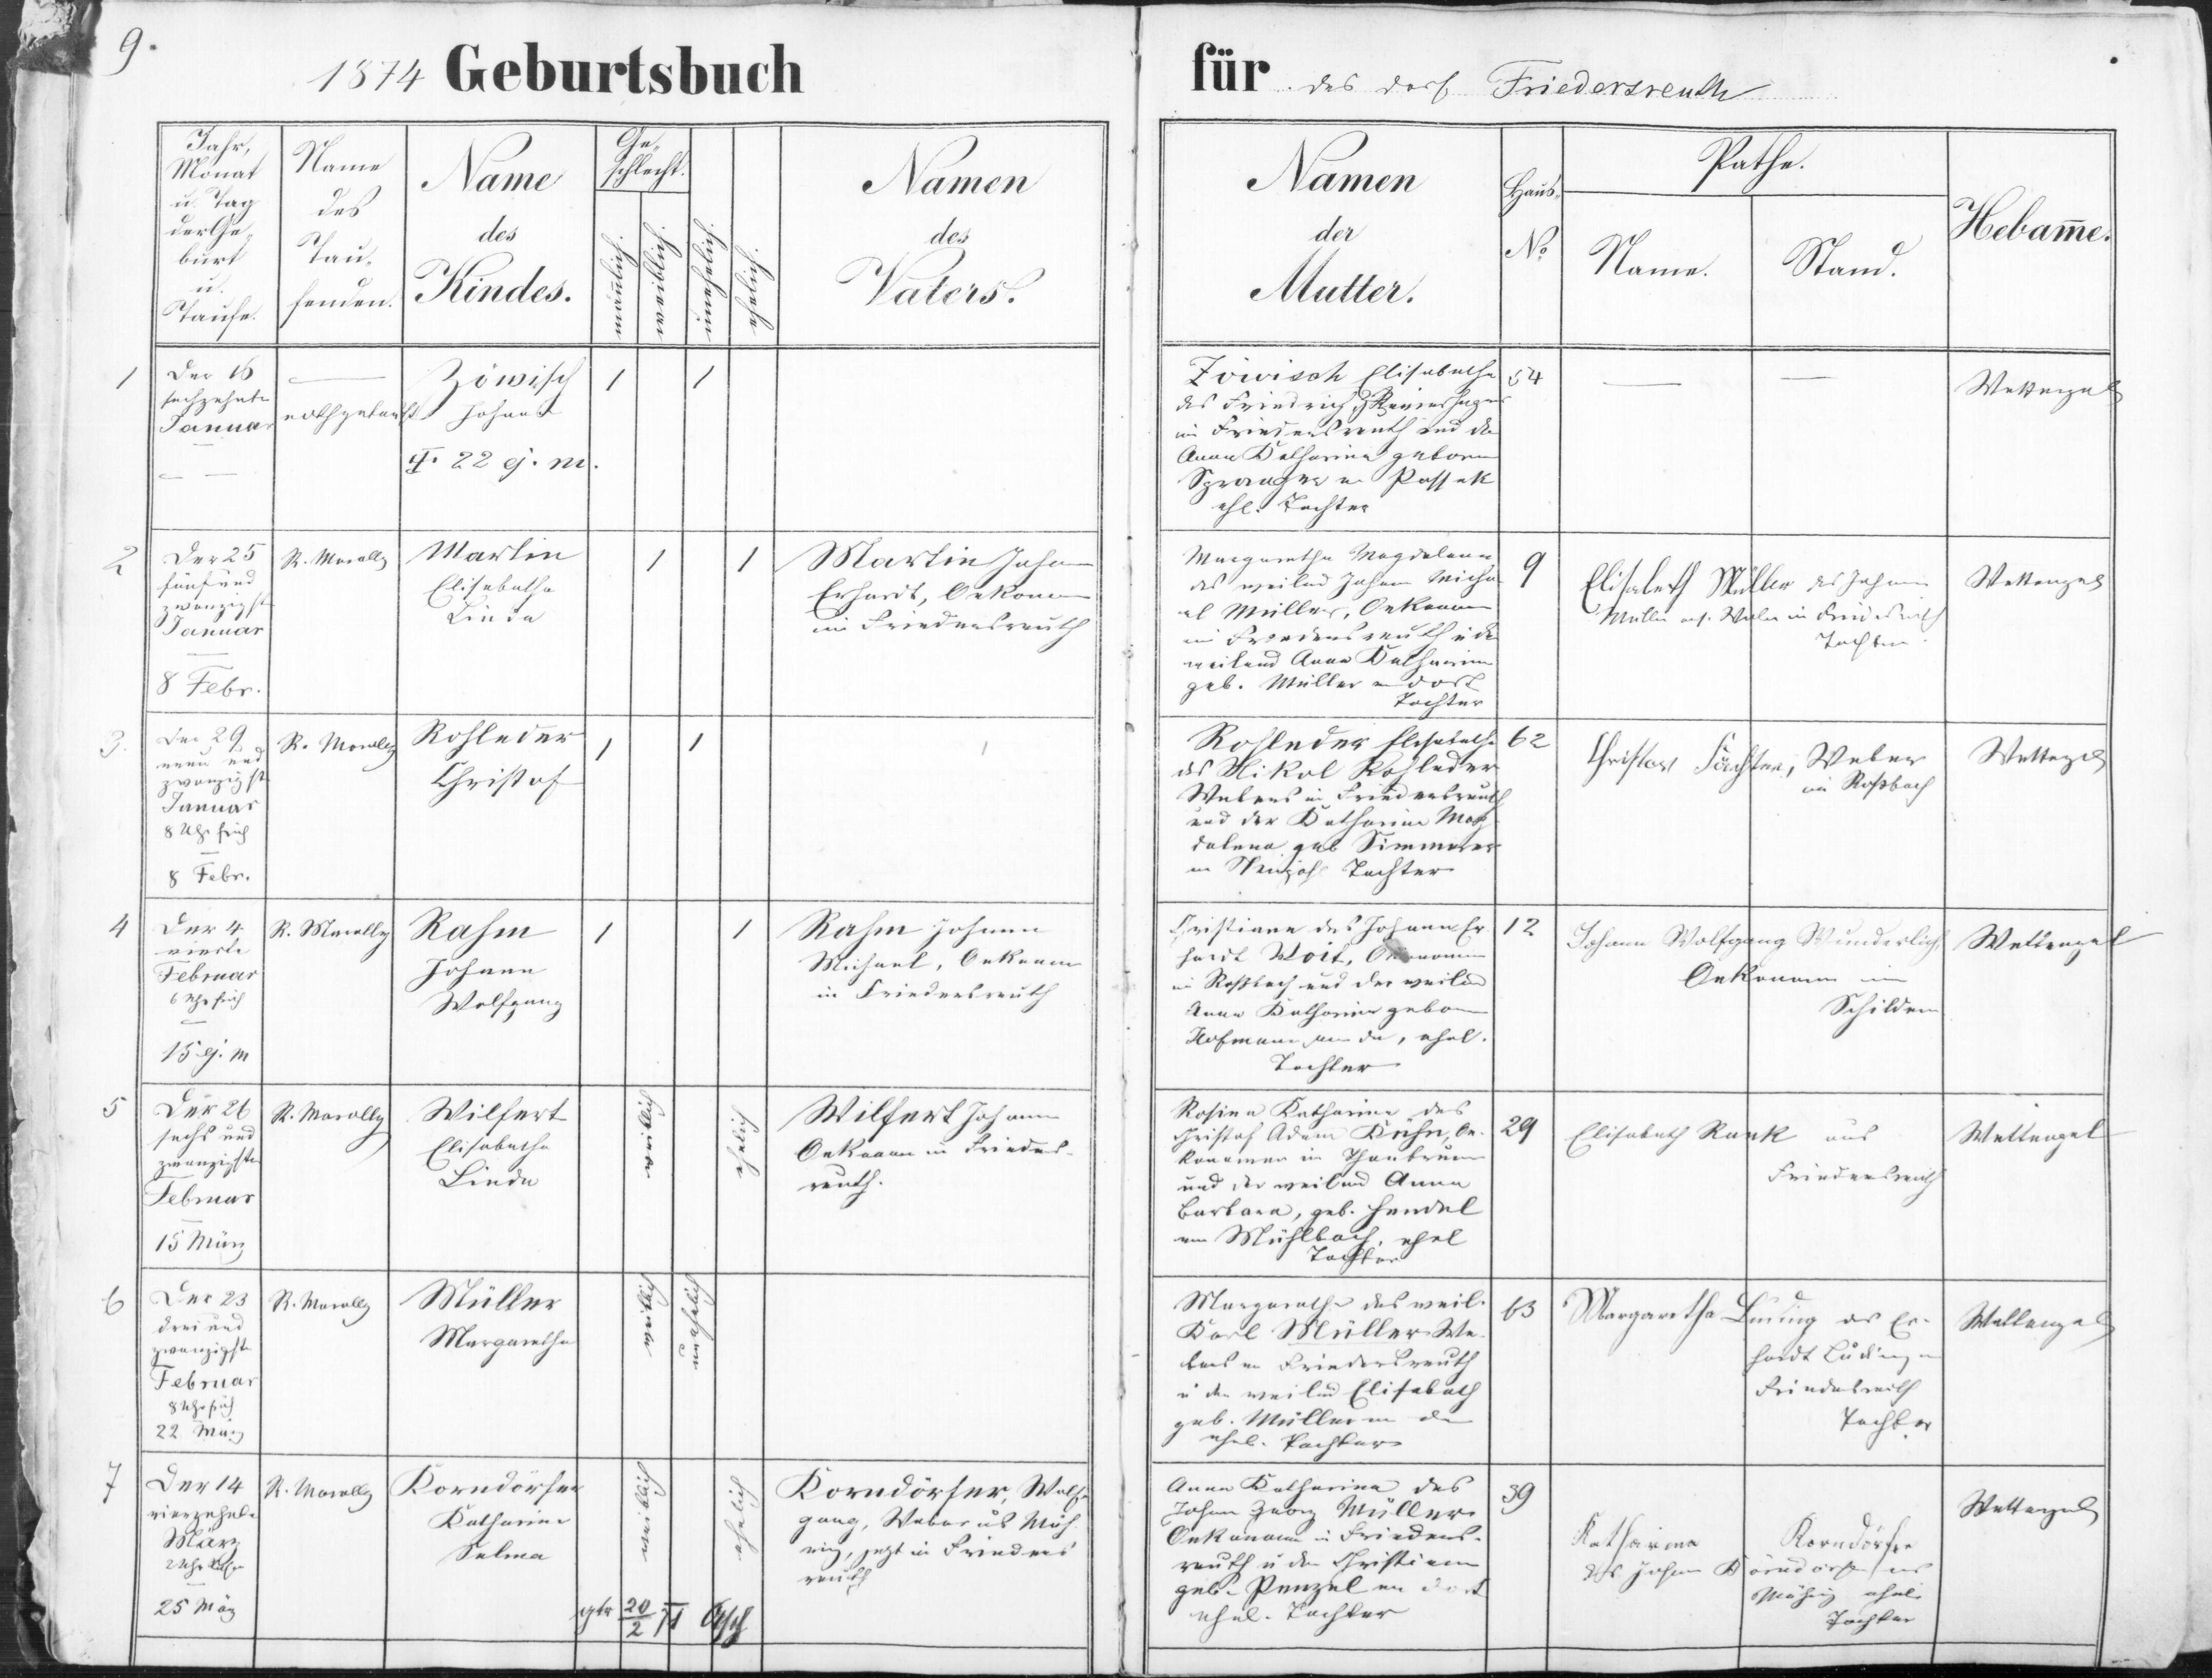 9.
1874 Geburtsbuch
für das dorf Friedersreuth
Jahr,
Monat
u. Tag
der Ge„
burt
u.
Taufe.
Name
des
Tau„
fenden.
Name
des
Kindes.
Ge„
schlecht.
mänlich.
weiblich.
unehelich.
ehelich.
Namen
des
Vaters.
Namen
der
Mutter.
Haus„
No
Pathe.
Name.
Stand.
Hebam̄e.
1
Der 16
sechzehnte
Januar
nothgetauft
Zöwisch
Johann
†. 22 ej. m.
1
1
Zöwisch Elisabetha
des Friedrich
in Friedersreuth und der
Anna Katharina geborne
Spranger a. Possek
ehl. Tochter
54
Wettengel
2
Der 25
fünf und
zwanzigste
Januar
8 Febr.
R. Morally
Martin
Elisabetha
Linda
1
1
Martin Johann
Erhardt, Oekonom
in Friedersreuth
Margaretha Magdalena
des weiland Johann Micha
el Müller, Oekonom
in Friedersreuth u. der
weiland Anna Katharina
geb. Müller a. dort
Tochter
9
Elisabeth Müller des Johann
Müller Weber in Friedersreuth
Tochter
Wettengel
3.
Der 29
neun und
zwanzigste
Januar
8 Uhr früh
8 Febr.
R. Morally
Rohleder
Christof
1
1
Rohleder Elisabetha
des Nikol Rohleder
Webers in Friedersreuth
und der Katharina Mag
dalena geb Simmerer
Tochter
62
Christof Künstner, Weber
in Roßbach
Wettengel
4
Der 4.
vierte
Februar
6 Uhr früh
15 ej. m
R. Morally
Rahm
Johann
Wolfgang
1
1
Rahm Johann
Michael, Oekonom
in Friedersreuth
Christiana des Johann Er
hardt Voit, Oekonom
in Roßbach und der weiland
Anna Katharina geborne
Hofmann von da, ehel.
Tochter
12
Johann Wolfgang Wunderlich,
Oekonom in
Schildern
Wettengel
5
Der 26
sechs und
zwanzigste
Februar
15 März
R. Morally
Wilfert
Elisabetha
Linda
weiblich
ehelich
Wilfert Johann
Oekonom in Frieders-
reuth.
Rosina Katharina des
Christof Adam Kühn, Oe-
konomen in Thonbrunn
und der weiland Anna
Barbara, geb. Hendel
von Mühlbach, ehel
Tochter
29
Elisabeth Rank aus
Friedersreuth
Wettengel
6
Der 23
drei und
zwanzigste
Februar
8 Uhr früh
22 März
R. Morally
Müller
Margaretha
weiblich
unehelich
Margaretha des weil.
Karl Müller We-
bers in Friedersreuth
u. der weiland Elisabeth
geb. Müller von da
ehel. Tochter
63
Margaretha Luding des Er-
hardt Luding in
Friedersreuth
Tochter
Wettengel
7
Der 14
vierzehnte
März
25 März
R. Morally
Korndörfer
Katharina
Selma
weiblich
ehelich
Korndörfer, Wolf
gang, Weber aus Mäh
ring, jetzt in Frieders
reuth
Anna Katharina des
Johann Georg Müller
Oekonom in Frieders-
reuth u. der Christiana
geb. Penzel von dort
ehel. Tochter
39
Katharina Korndörfer
des Johann Korndörfer aus
Mähring ehel.
Tochter
Wettengel
20/2 71 Asch